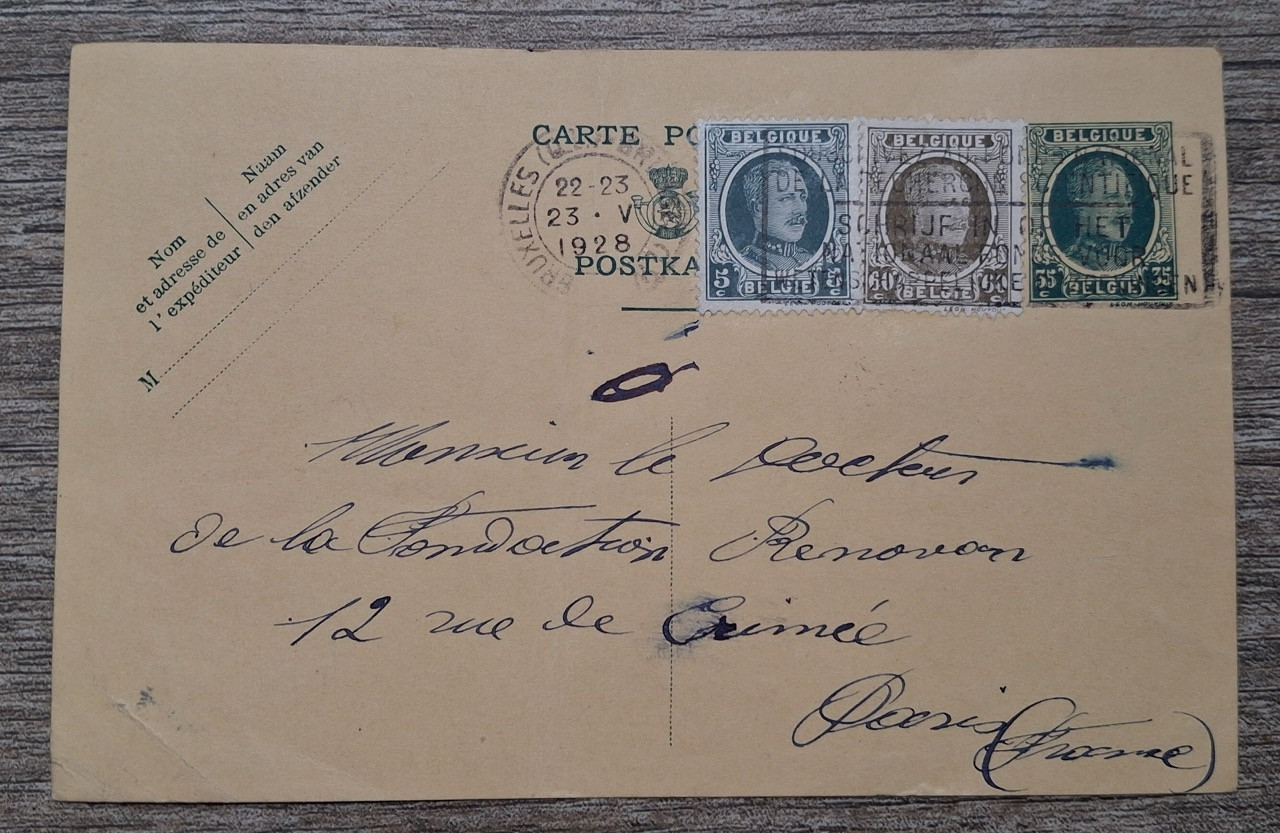 CARTE PO
POSTKA
Nom
et adresse de
l'expéditeur
Naam
en adres van
den afzender
M
BRUXELLES
22-23
23 · V
1928
BELGIQUE
5 c 5 c
BELGIË
BELGIQUE
BELGIË
BELGIQUE
35 c 35 c
BELGIË
DE LA
SCHRIJF IN OP HET
NATIONAAL FON
Monsieur le Docteur
de la Fondation Renovan
12 rue de Crimée
Paris (France)